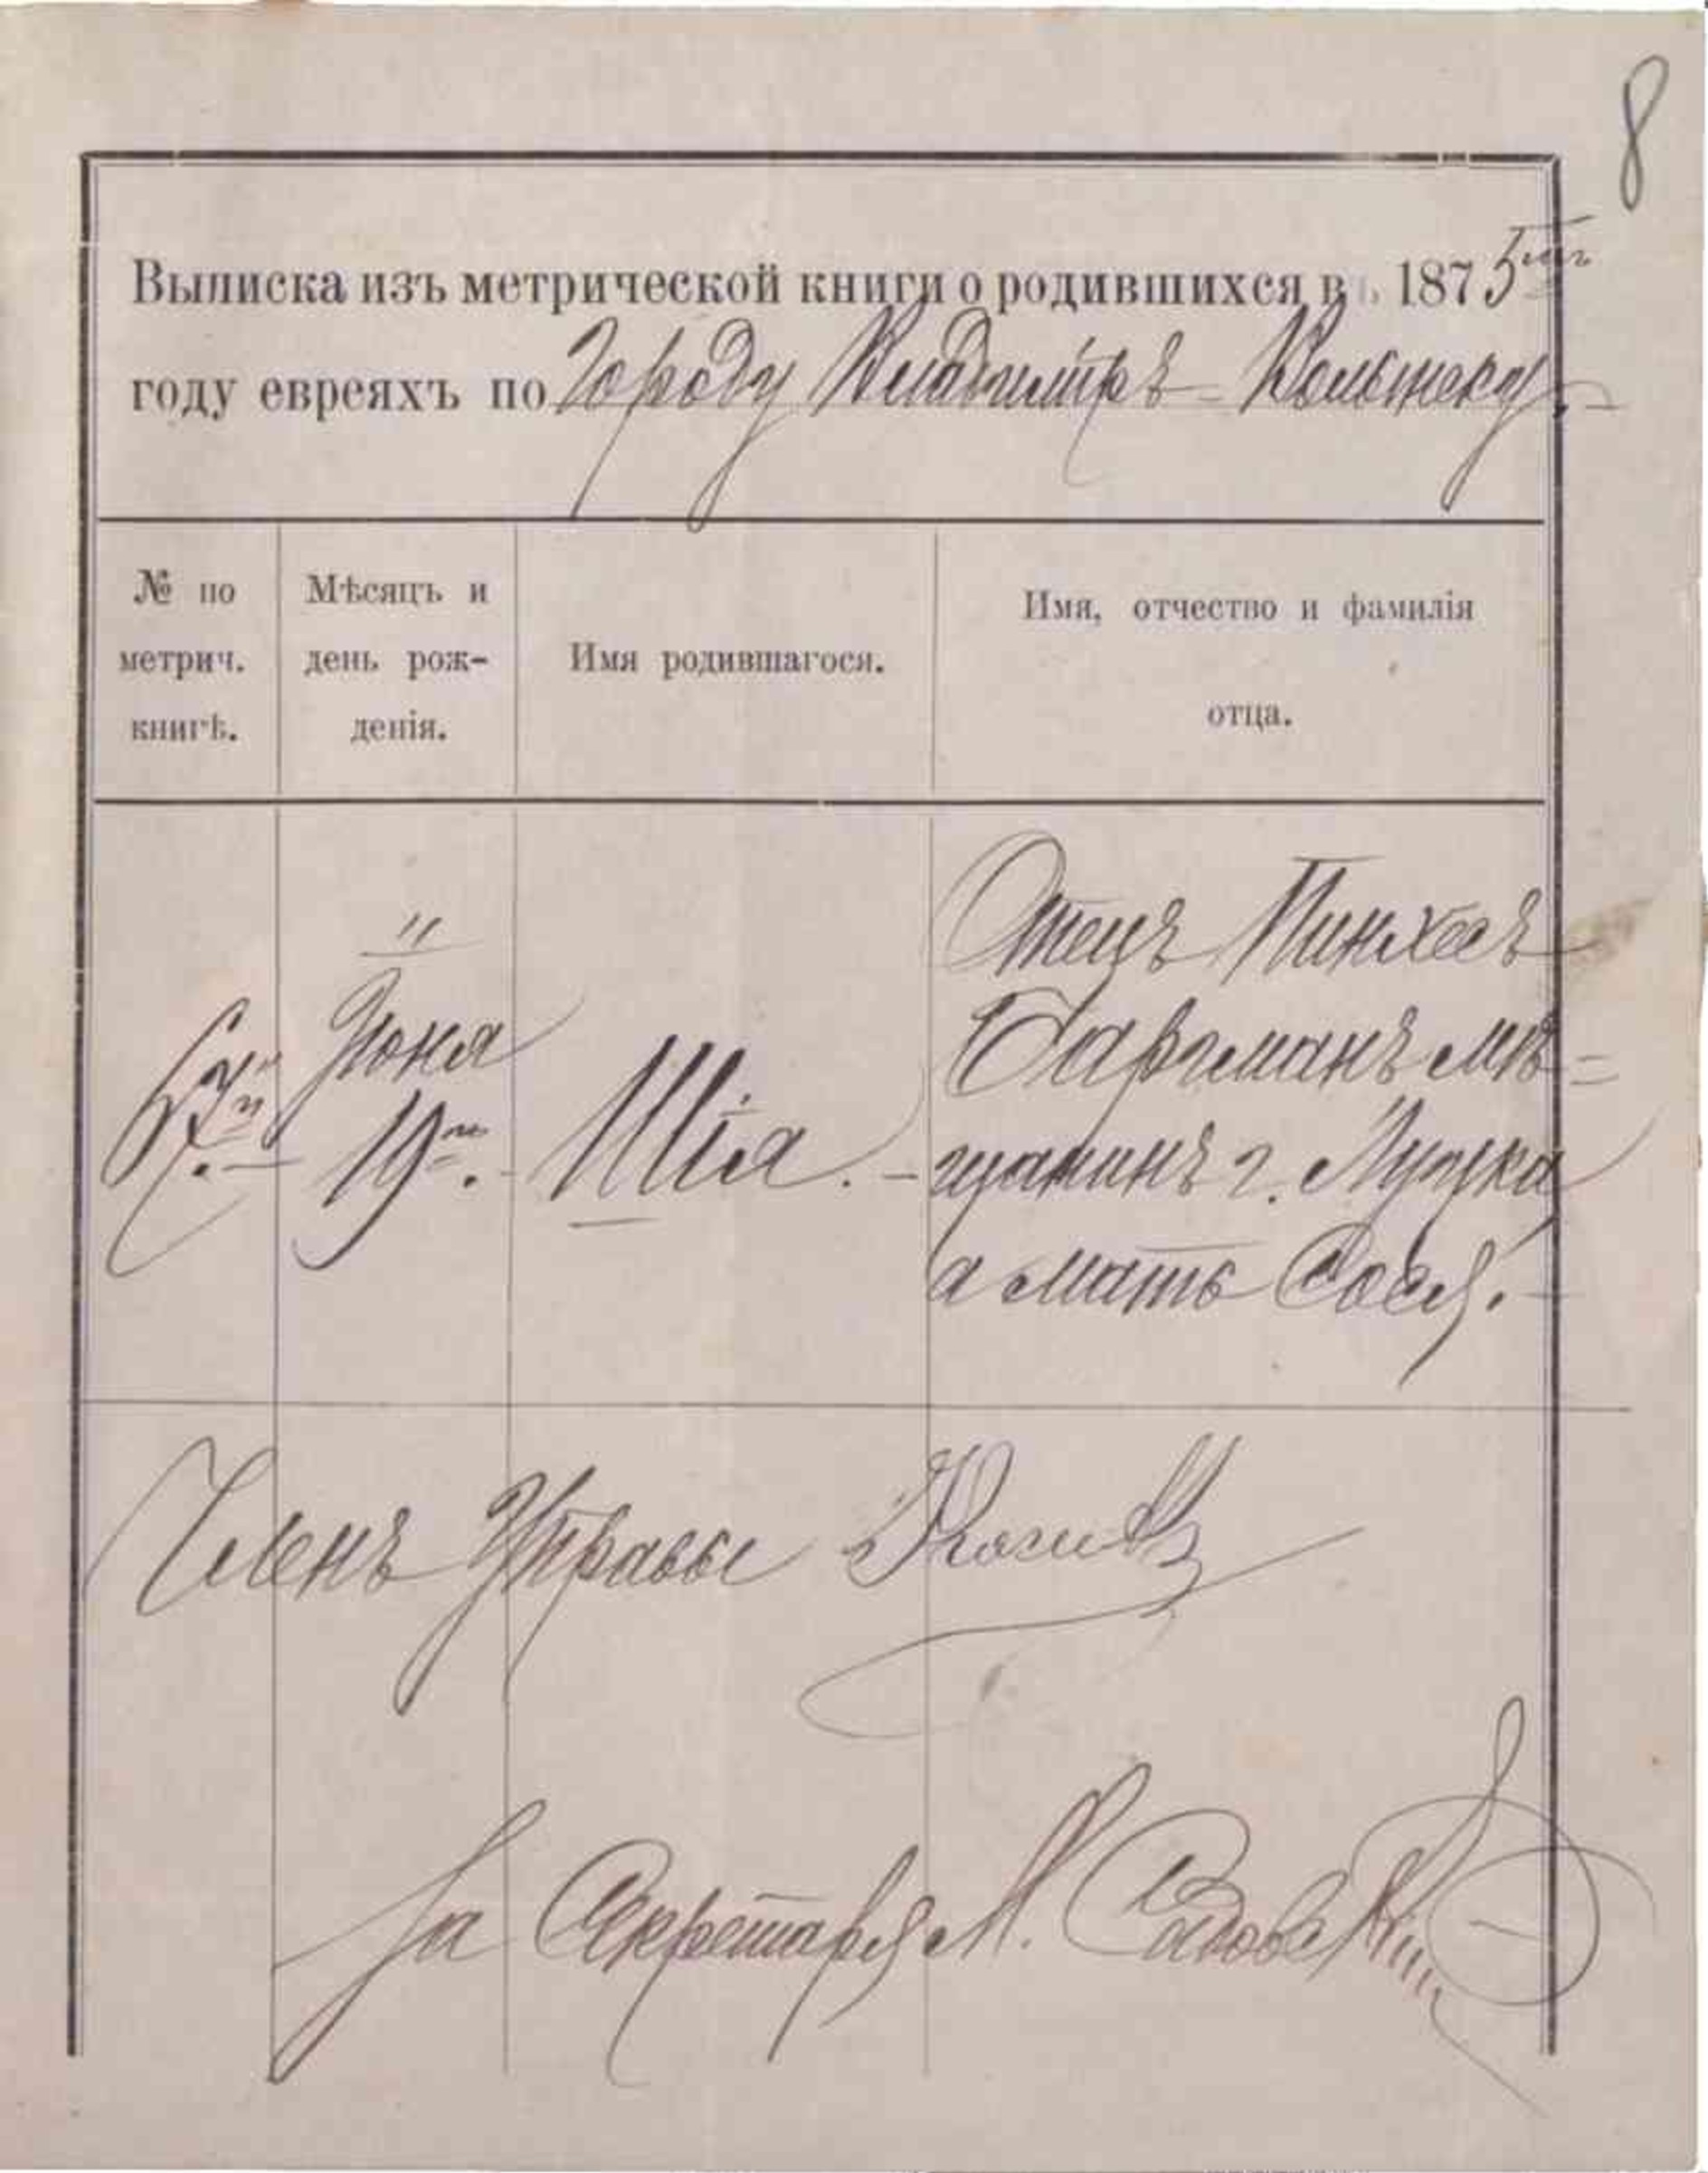 8
Выписка изъ метрической книги о родившихся въ 1875мъ
году евреяхъ по Городу Владиміръ-Волынску.
№ по метрич. книгѣ.
Мѣсяцъ и день рож-денія.
Имя родившагося.
Имя, отчество и фамилія отца.
67й
Іюня
19го.
Шія.
Отецъ Пинхасъ
Баргманъ мѣ=
щанинъ г. Луцка
а мать Сося.
Членъ Управы
За Секретаря М. Садовскій